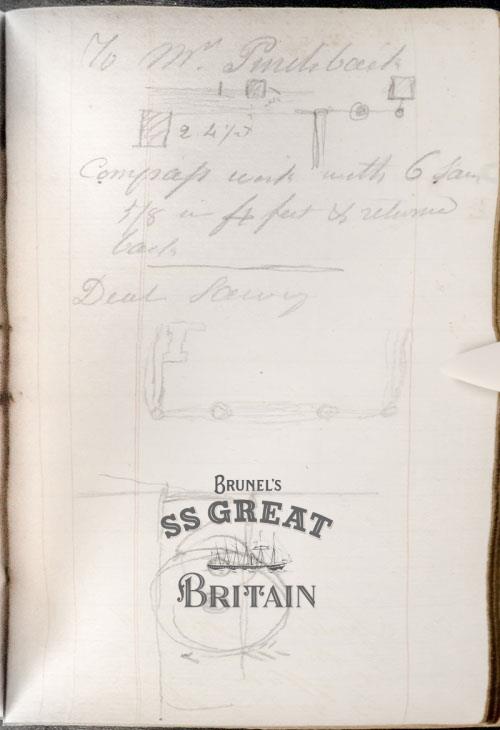 To Mr. Pinchback
2 4 1/2
Compass work with 6 Saw
5/8 in 4 feet & returned
back
Deal Sawing
BRUNEL'S
SS GREAT
BRITAIN